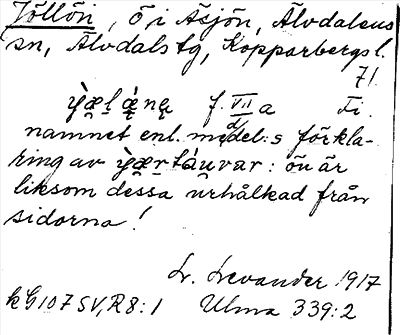 Jöllön, ö i Åsjön, Älvdalens
sn, Älvdals tg, Kopparbergs l.
71.
f. VII a
namnet enl. medel:s förkla-
ring av : ön är
liksom dessa urhålkad från
sidorna!
L. Levander 1917
kG107 SV, R8:1 Ulma 339:2